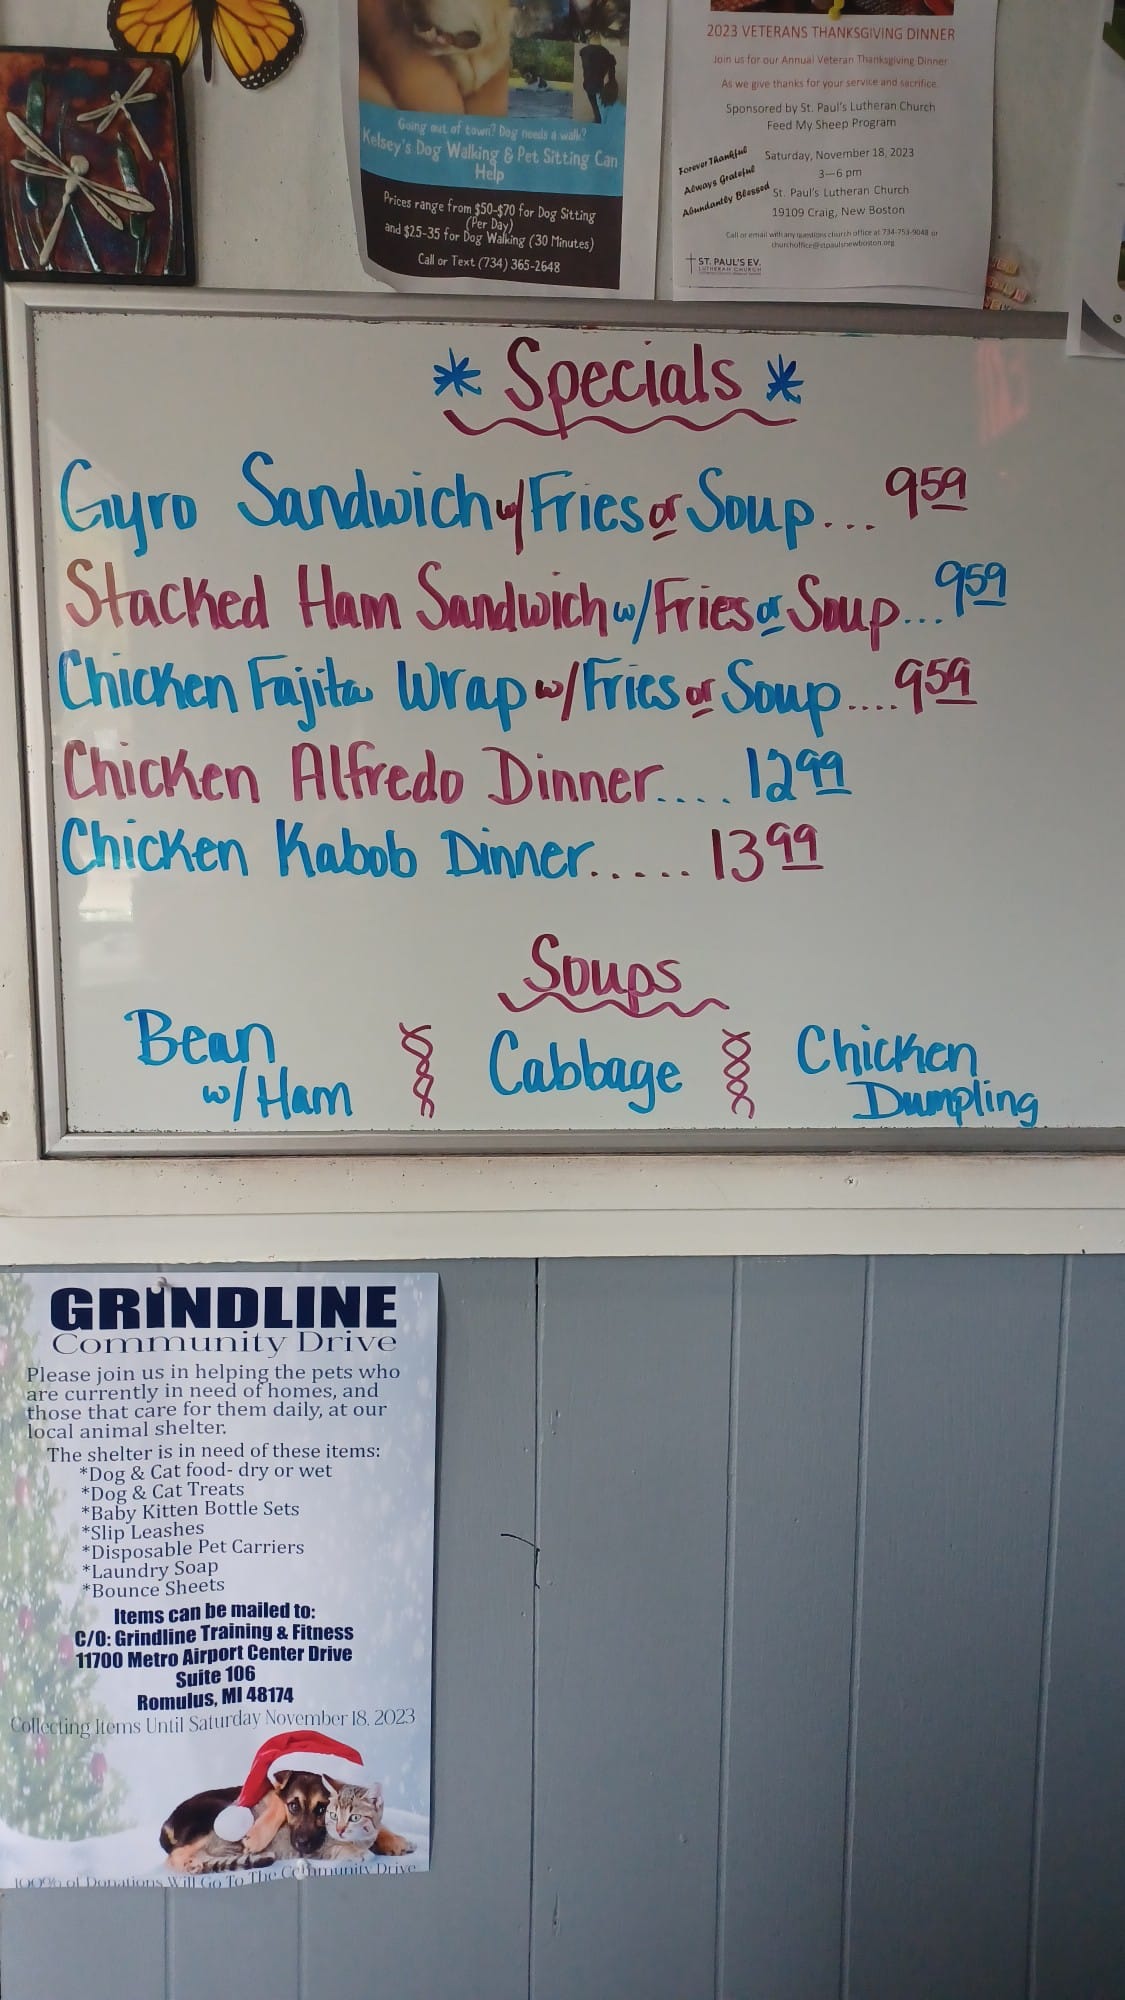 Going out of town? Dog needs a walk?
Kelsey's Dog Walking & Pet Sitting Can
Help
Prices range from $50-$70 for Dog Sitting
(Per Day)
and $25-35 for Dog Walking (30 Minutes)
Call or Text (734) 365-2648
2023 VETERANS THANKSGIVING DINNER
Join us for our Annual Veteran Thanksgiving Dinner
As we give thanks for your service and sacrifice.
Sponsored by St. Paul's Lutheran Church
Feed My Sheep Program
Forever Thankful
Always Grateful
Abundantly Blessed
Saturday, November 18, 2023
3—6 pm
St. Paul's Lutheran Church
19109 Craig, New Boston
Call or email with any questions church office at 734-753-9048 or
churchoffice@stpaulsnewboston.org
ST. PAUL'S EV.
LUTHERAN CHURCH
* Specials *
Gyro Sandwich w/ Fries or Soup... 9 59
Stacked Ham Sandwich w/ Fries or Soup... 9 59
Chicken Fajita Wrap w/ Fries or Soup.... 9 59
Chicken Alfredo Dinner.... 12 99
Chicken Kabob Dinner..... 13 99
Soups
Bean
w/ Ham
Cabbage
Chicken
Dumpling
GRINDLINE
Community Drive
Please join us in helping the pets who
are currently in need of homes, and
those that care for them daily, at our
local animal shelter.
The shelter is in need of these items:
*Dog & Cat food- dry or wet
*Dog & Cat Treats
*Baby Kitten Bottle Sets
*Slip Leashes
*Disposable Pet Carriers
*Laundry Soap
*Bounce Sheets
Items can be mailed to:
C/O: Grindline Training & Fitness
11700 Metro Airport Center Drive
Suite 106
Romulus, MI 48174
Collecting Items Until Saturday November 18, 2023
100% of Donations Will Go To The Community Drive